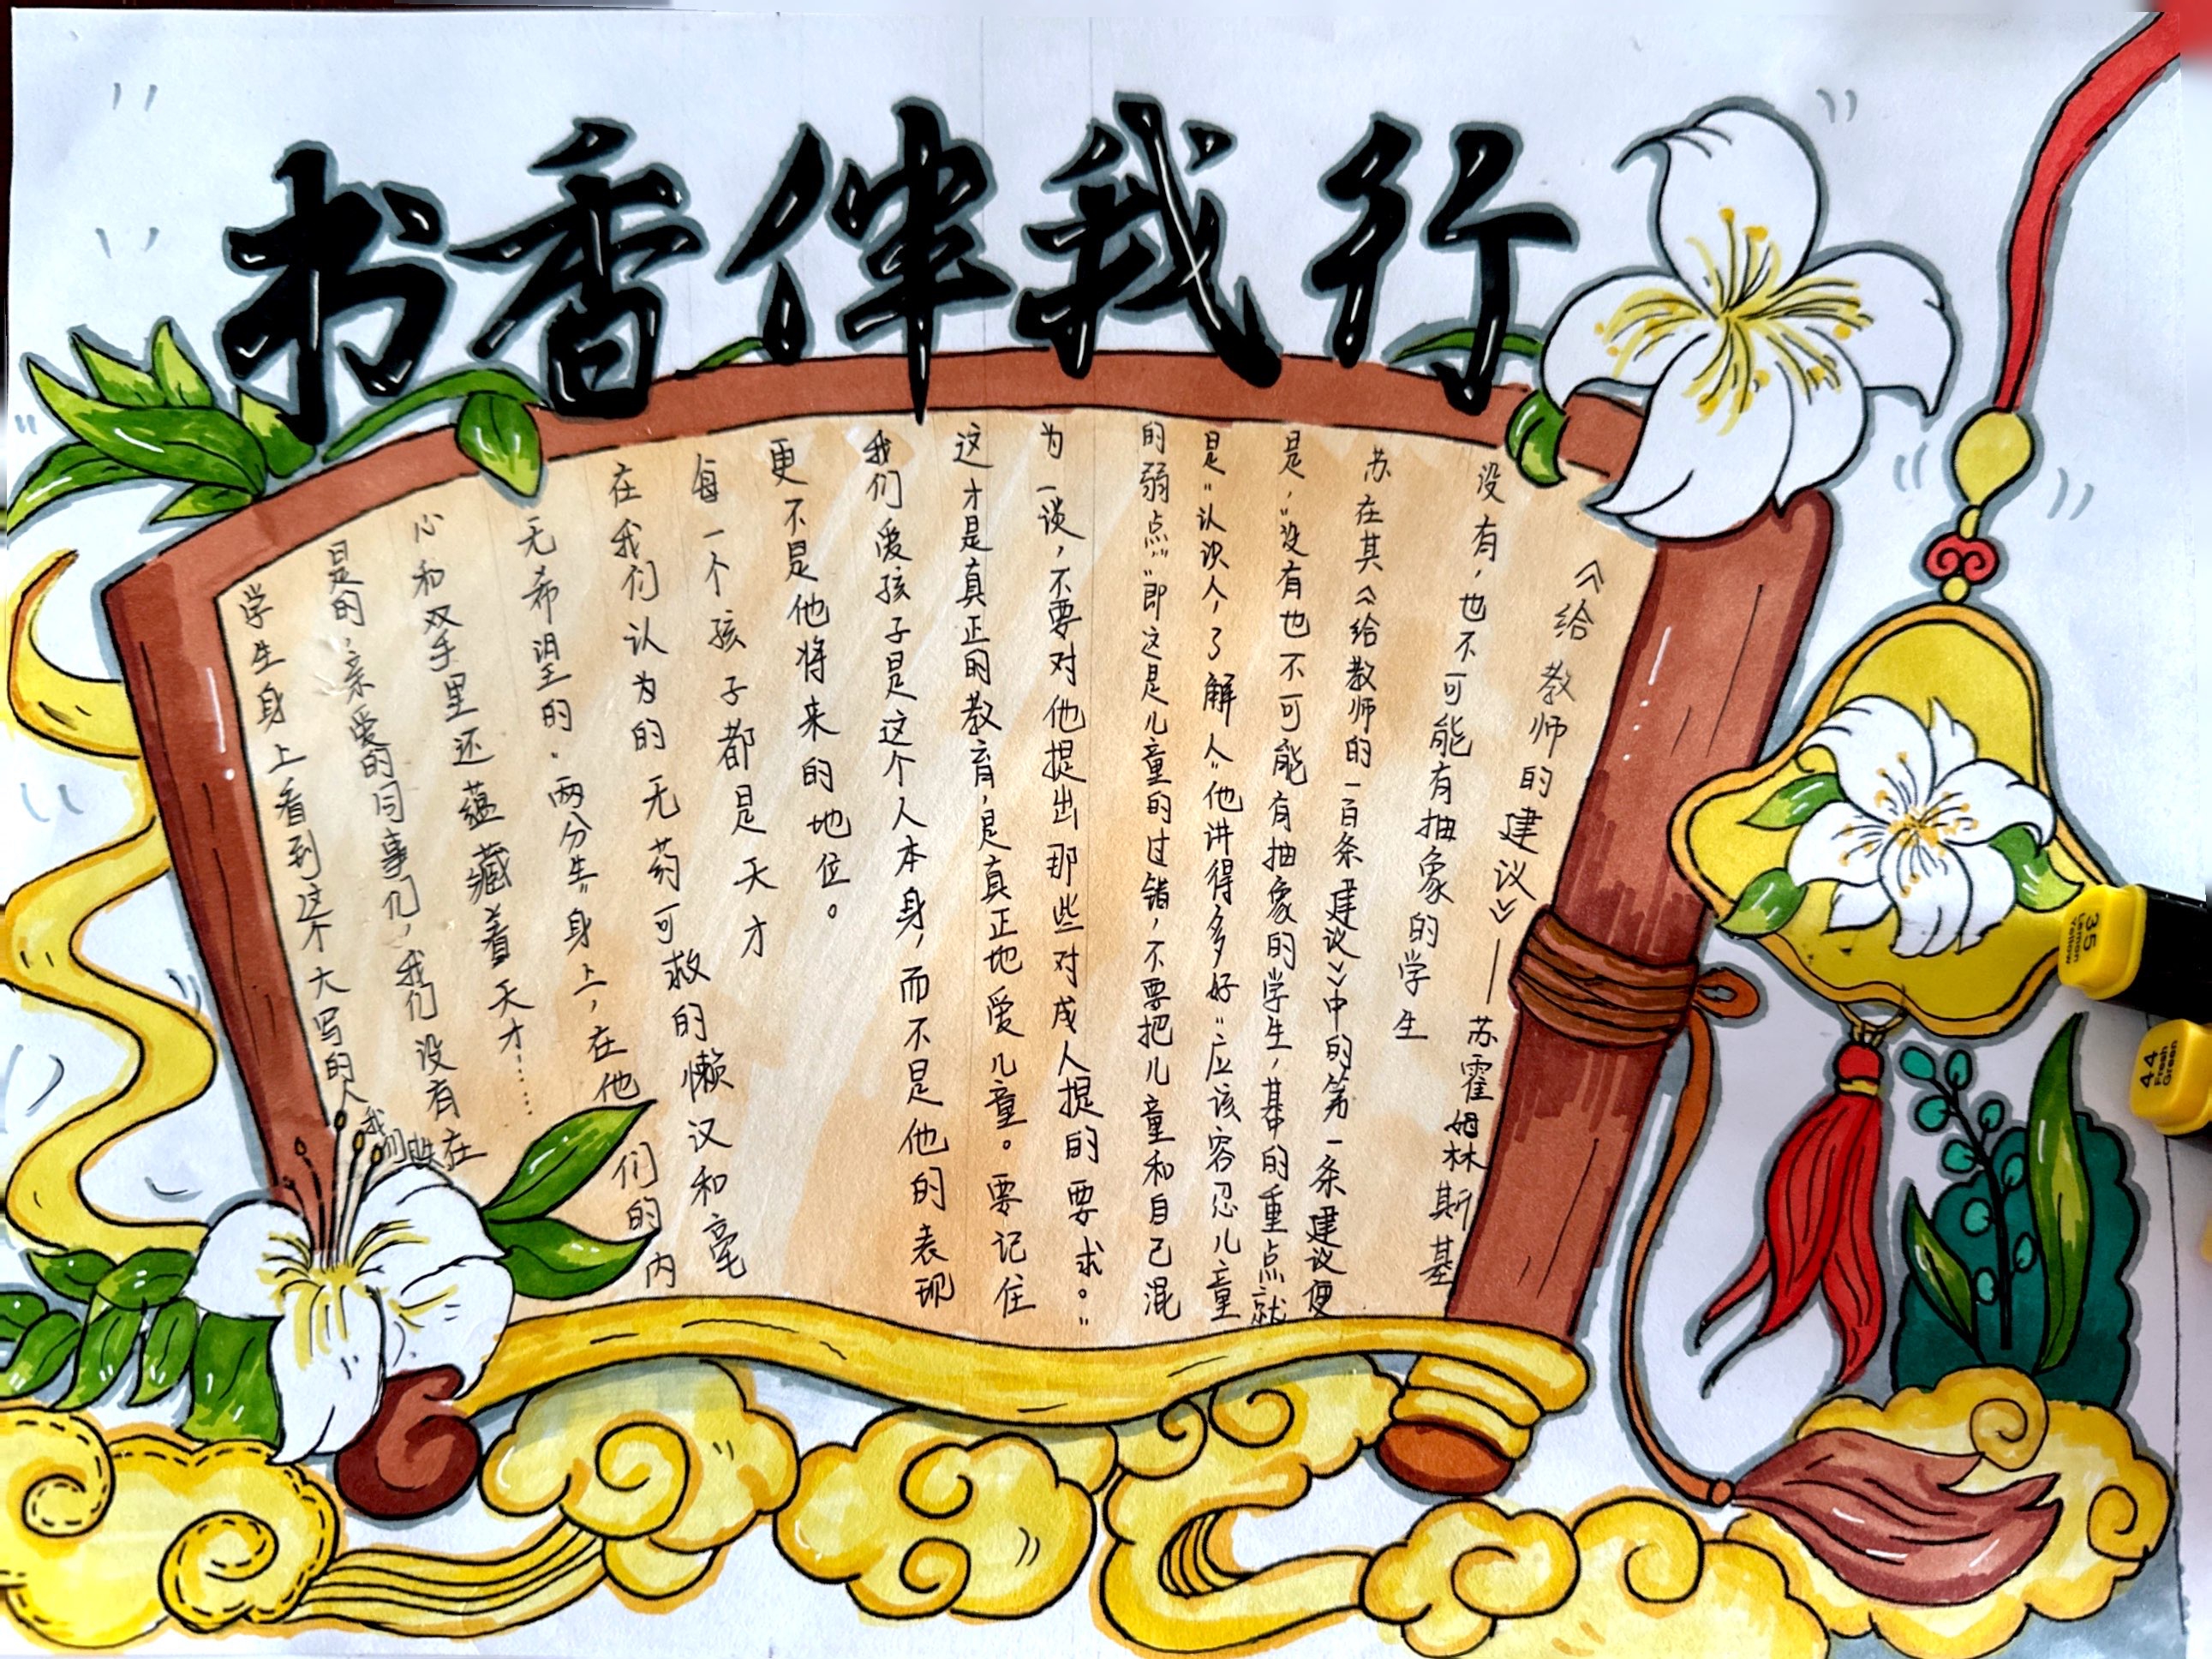 书香伴我行
《给教师的建议》——苏霍姆林斯基
没有，也不可能有抽象的学生
苏在其《给教师的一百条建议》中的第一条建议便
是，“没有也不可能有抽象的学生，其中的重点就
是“认识人，了解人”他讲得多好“应该容忍儿童
的弱点”“即这是儿童的过错，不要把儿童和自己混
为一谈，不要对他提出那些对成人提的要求。”
这才是真正的教育，是真正地爱儿童。要记住
我们爱孩子是这个人本身，而不是他的表现
更不是他将来的地位。
每一个孩子都是天才
在我们认为的无药可救的懒汉和毫
无希望的“两分生”身上，在他们的内
心和双手里还蕴藏着天才……
是的，亲爱的同事们，我们没有在
学生身上看到这个大写的人
35
Lemon Yellow
44
Fresh Green